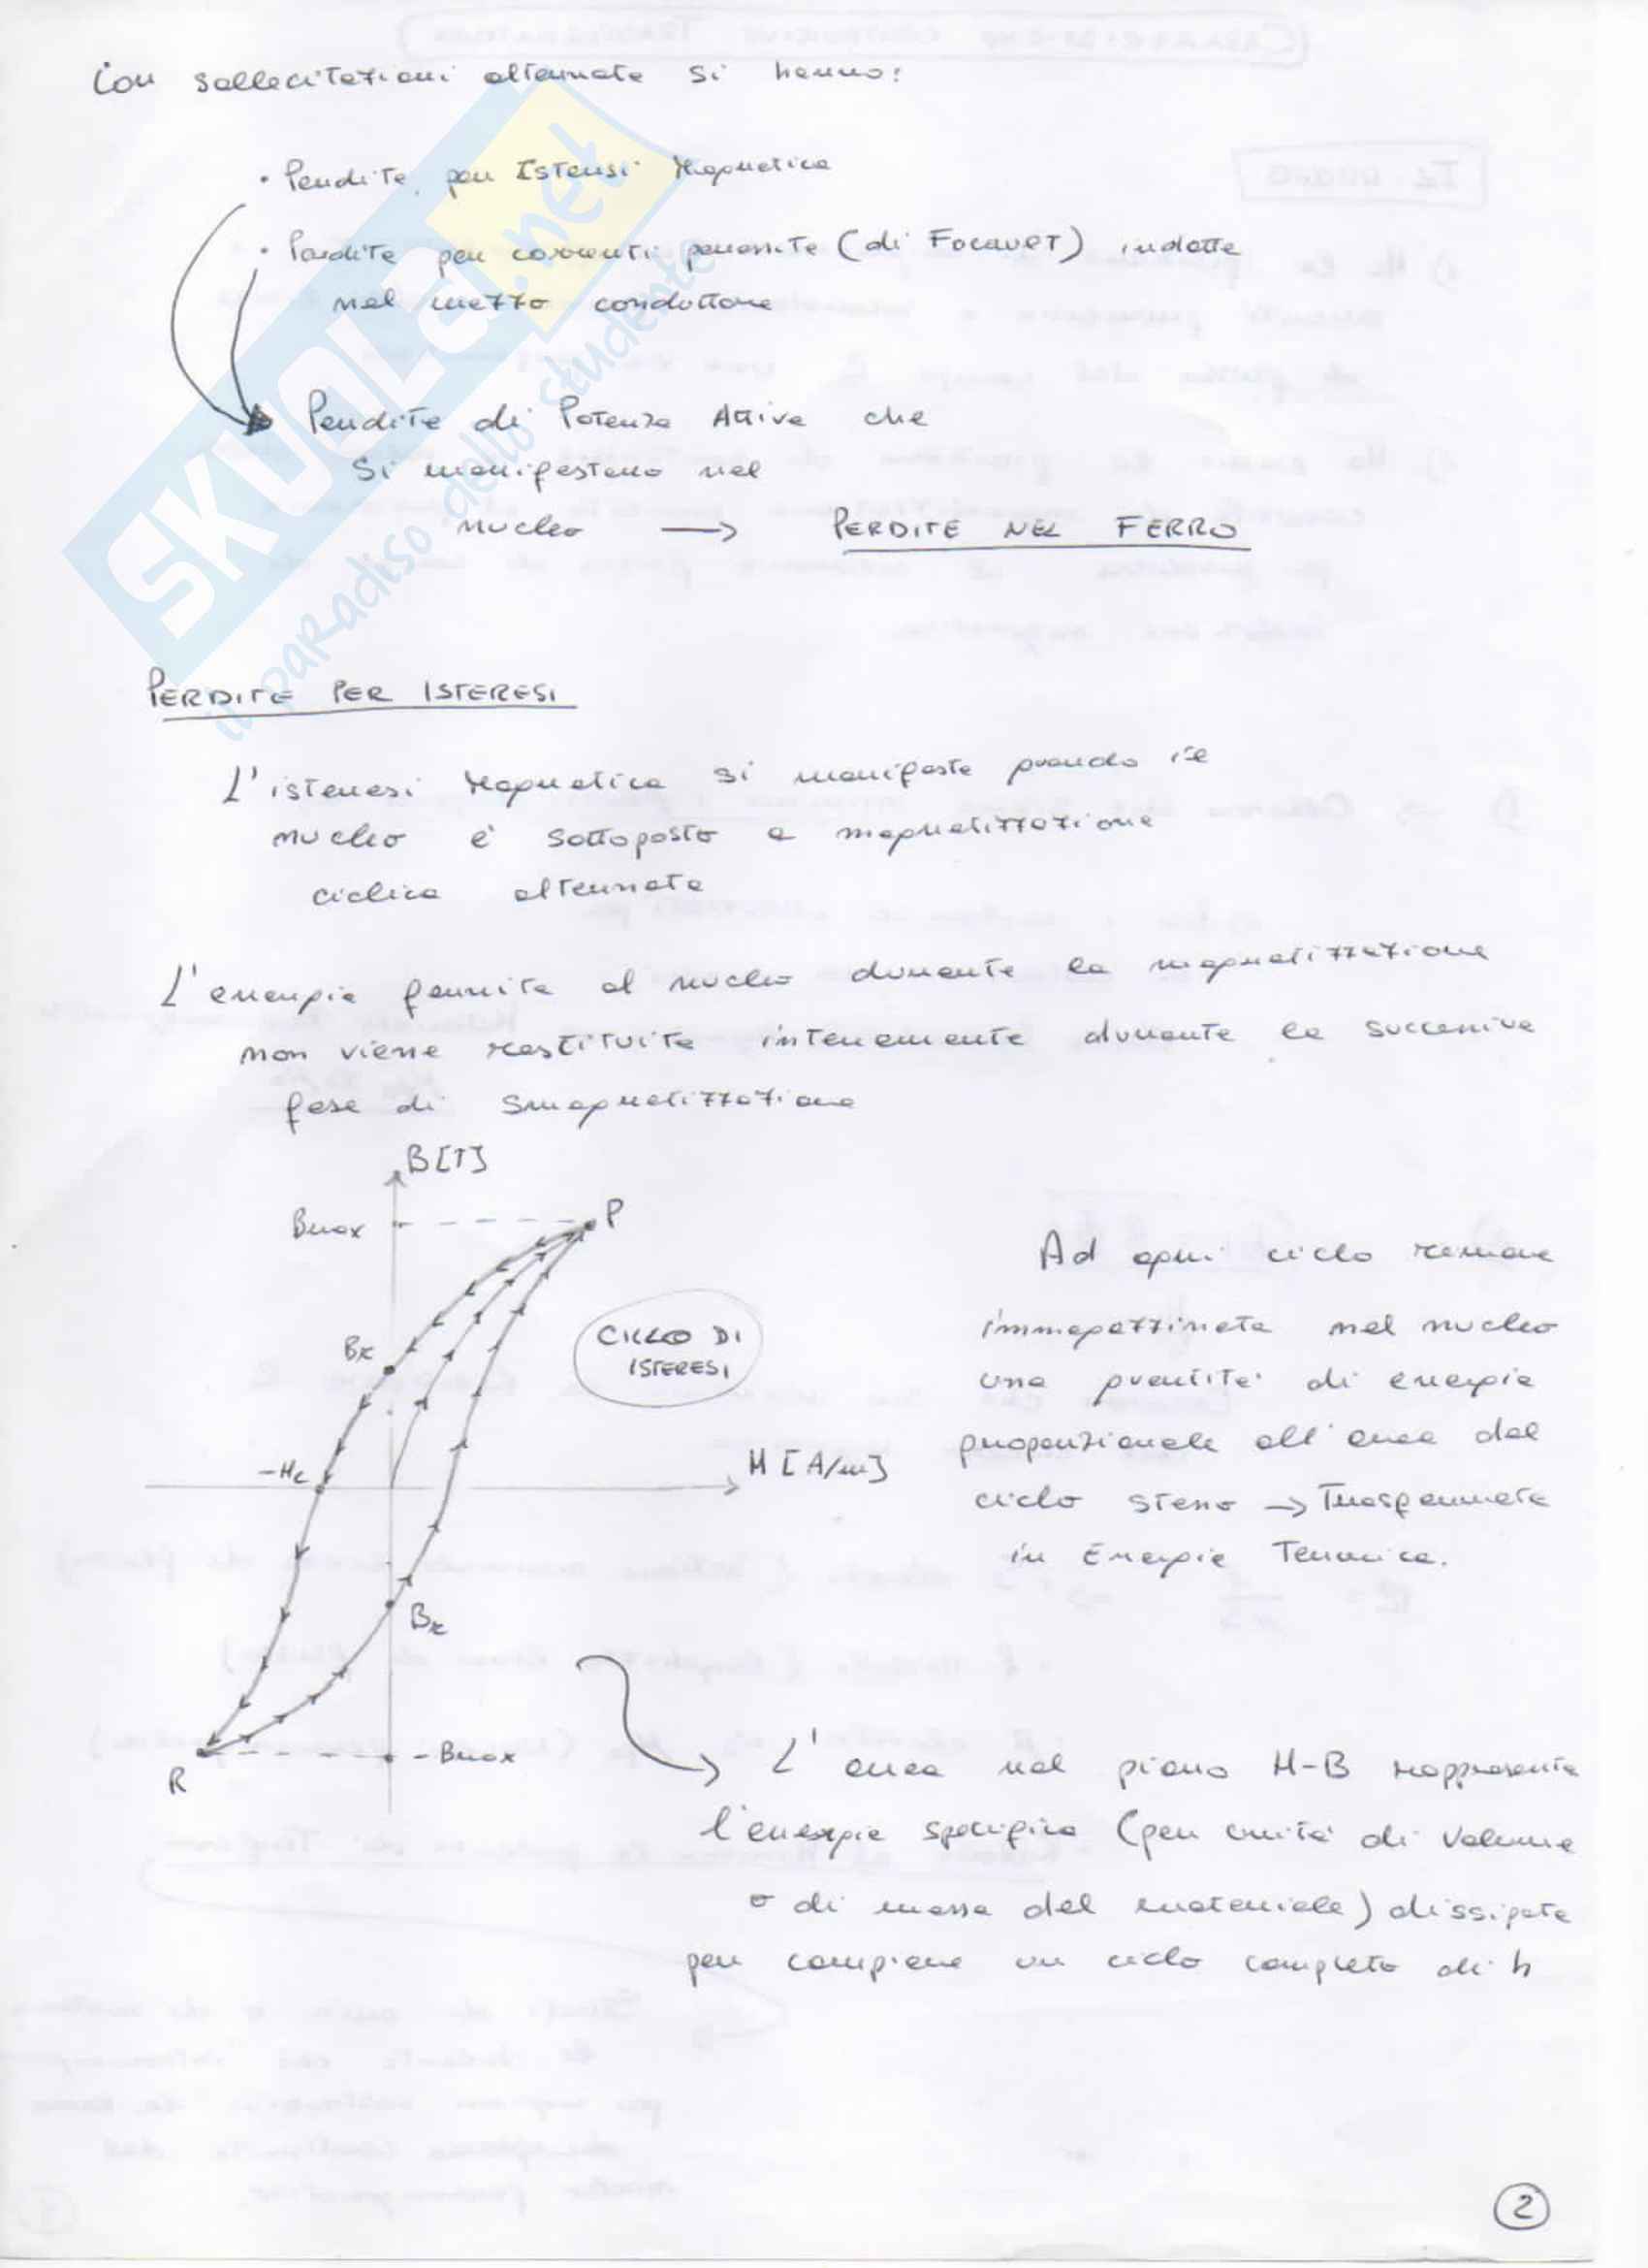 Con sollecitazioni alternate si hanno:
• Perdite per Isteresi Magnetica
• Perdite per correnti parassite (di Focault) indotte
nel mezzo conduttore
Perdite di Potenza Attiva che
si manifestano nel
nucleo → PERDITE NEL FERRO
SKUOLA.net
il paradiso dello studente
PERDITE PER ISTERESI
L'isteresi Magnetica si manifesta quando il
nucleo è sottoposto a magnetizzazione
ciclica alternata
L'energia fornita al nucleo durante la magnetizzazione
non viene restituita interamente durante la successiva
fase di smagnetizzazione
B[T]
Bmax
P
Br
CICLO DI
ISTERESI
-Hc
H [A/m]
Br
R
-Bmax
Ad ogni ciclo rimane
immagazzinata nel nucleo
una quantità di energia
proporzionale all'area del
ciclo stesso → Trasformata
in Energia Termica.
L'area nel piano H-B rappresenta
l'energia specifica (per unità di Volume
o di massa del materiale) dissipata
per compiere un ciclo completo di h
2